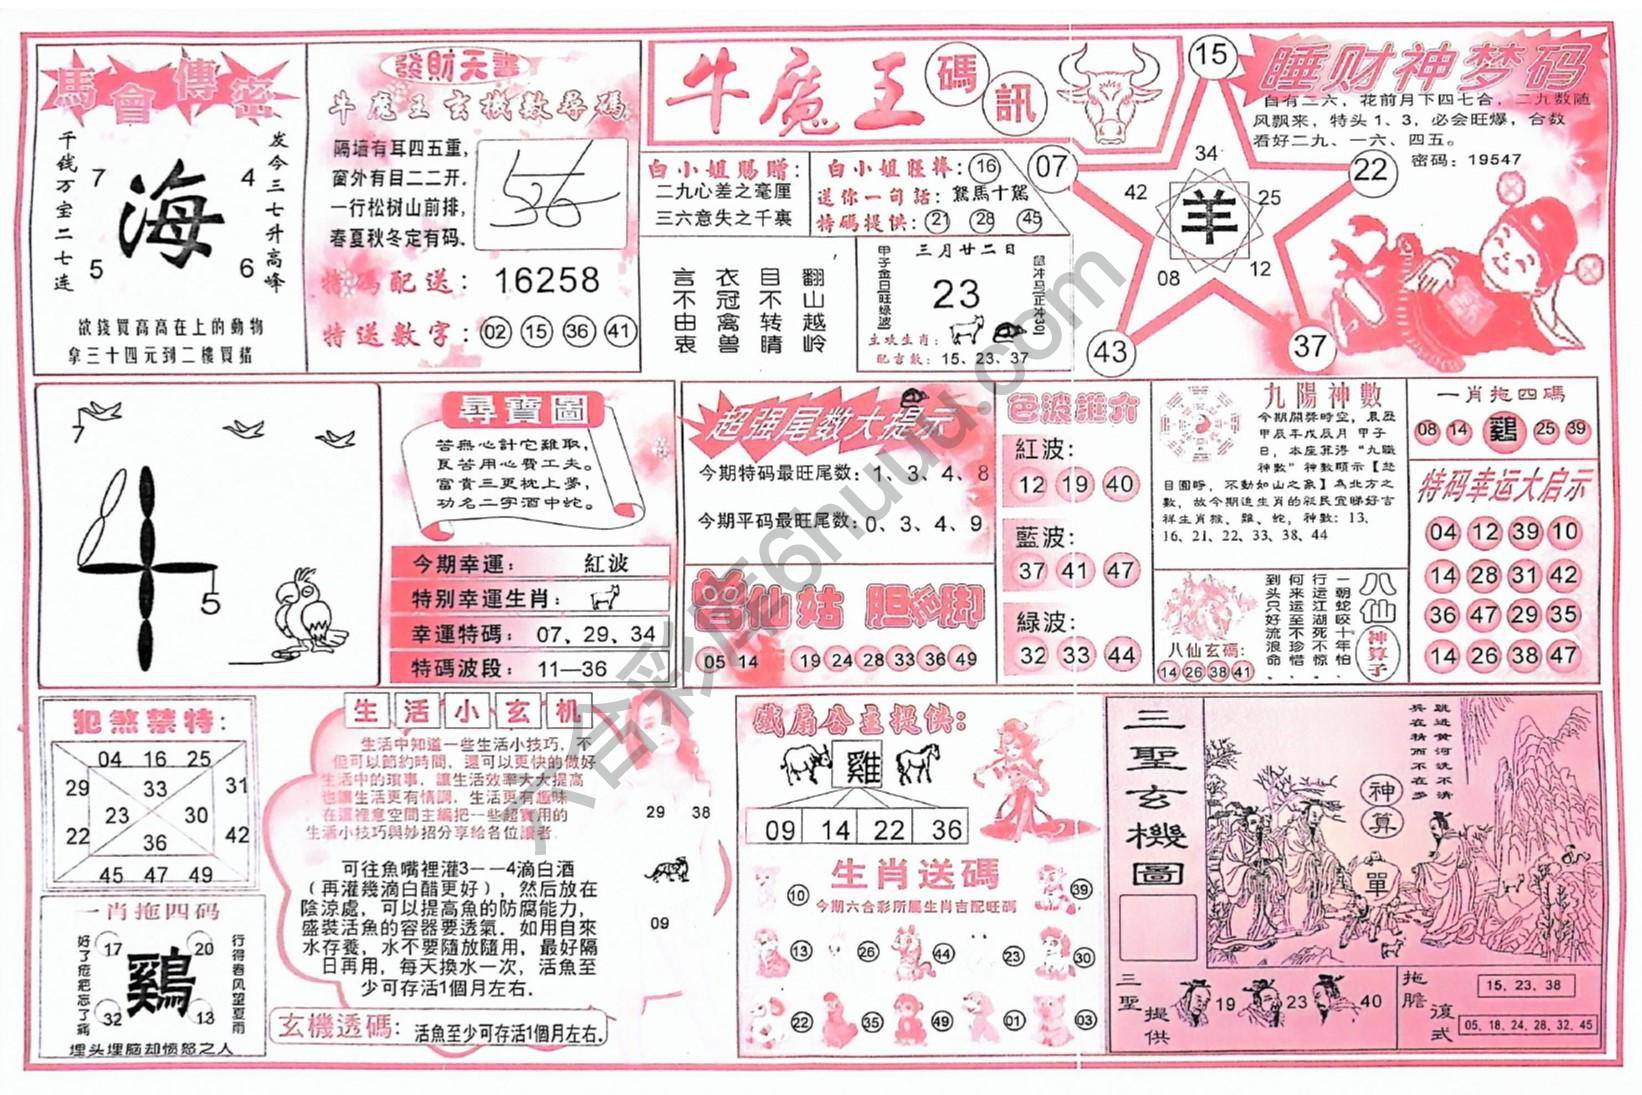 馬會傳密
千钱万宝二七连
发今三七升高峰
7
4
海
5
6
欲錢買高高在上的動物
拿三十四元到二樓買豬
發財天書
牛魔王玄機數尋碼
隔墙有耳四五重,
窗外有目二二开.
一行松树山前排,
春夏秋冬定有码.
特碼配送: 16258
特送數字: 02 15 36 41
牛魔王
碼訊
白小姐賜贈:
二九心差之毫厘
三六意失之千裏
白小姐旺捧: 16
送你一句話: 駑馬十駕
特碼提供: 21 28 45
翻山越岭
目不转睛
衣冠禽兽
言不由衷
三月廿二日
甲子金日(旺绿波)
23
主攻生肖:
配吉數: 15、23、37
15
07
22
43
37
34
42
25
羊
08
12
睡财神梦码
自有二六，花前月下四七合，二九数随
风飘来，特头1、3，必会旺爆，合数
看好二九、一六、四五。
密码：19547
7
5
尋寶圖
苦無心計它難取，
瓦苦用心費工夫。
富貴三更枕上夢，
功名二字酒中蛇。
今期幸運： 紅波
特别幸運生肖：
幸運特碼： 07、29、34
特碼波段： 11—36
超强尾数大提示
今期特码最旺尾数: 1、3、4、8
今期平码最旺尾数: 0、3、4、9
曾仙姑 胆拖脚
05 14 19 24 28 33 36 49
色波推六
紅波:
12 19 40
藍波:
37 41 47
緑波:
32 33 44
九陽神數
今期開獎時空，農歷
甲辰年戊辰月 甲子
日，本座算得“九職
神數”神數顯示【怒
目圓睜，不動如山之象】為北方之
數，故今期追生肖的彩民宜睇好吉
祥生肖猴、雞、蛇，神數：13、
16、21、22、33、38、44
八仙
神算子
一朝蛇咬十年怕
行运江湖死不惊
何来运至不珍惜
到头只好流浪命
八仙玄碼:
14 26 38 41
一肖拖四碼
08 14 鷄 25 39
特码幸运大启示
04 12 39 10
14 28 31 42
36 47 29 35
14 26 38 47
犯煞禁特:
04 16 25
29 33 31
23 30
22 36 42
45 47 49
一肖拖四码
好了疮疤忘了痛
行得春风望夏雨
17 20
鷄
32 13
埋头埋脑却愤怒之人
生活小玄机
生活中知道一些生活小技巧，不
但可以節約時間，還可以更快的做好
生活中的瑣事，讓生活效率大大提高
也讓生活更有情調，生活更有趣味
在這裡意空間主編把一些超實用的
生活小技巧與妙招分享給各位讀者
可往魚嘴裡灌3——4滴白酒
（再灌幾滴白醋更好），然后放在
陰涼處，可以提高魚的防腐能力，
盛裝活魚的容器要透氣．如用自來
水存養，水不要隨放隨用，最好隔
日再用，每天換水一次，活魚至
少可存活1個月左右．
29 38
09
玄機透碼: 活魚至少可存活1個月左右.
鐵扇公主提供:
雞
09 14 22 36
生肖送碼
今期六合彩所屬生肖吉配旺碼
10 39
13 26 44 23 30
22 35 49 01 03
三聖玄機圖
跳进黄河洗不清
兵在精而不在多
神算
單
三聖提供
19 23 40
拖膽 15. 23. 38
復式 05. 18. 24. 28. 32. 45
六合彩库6huuu.com